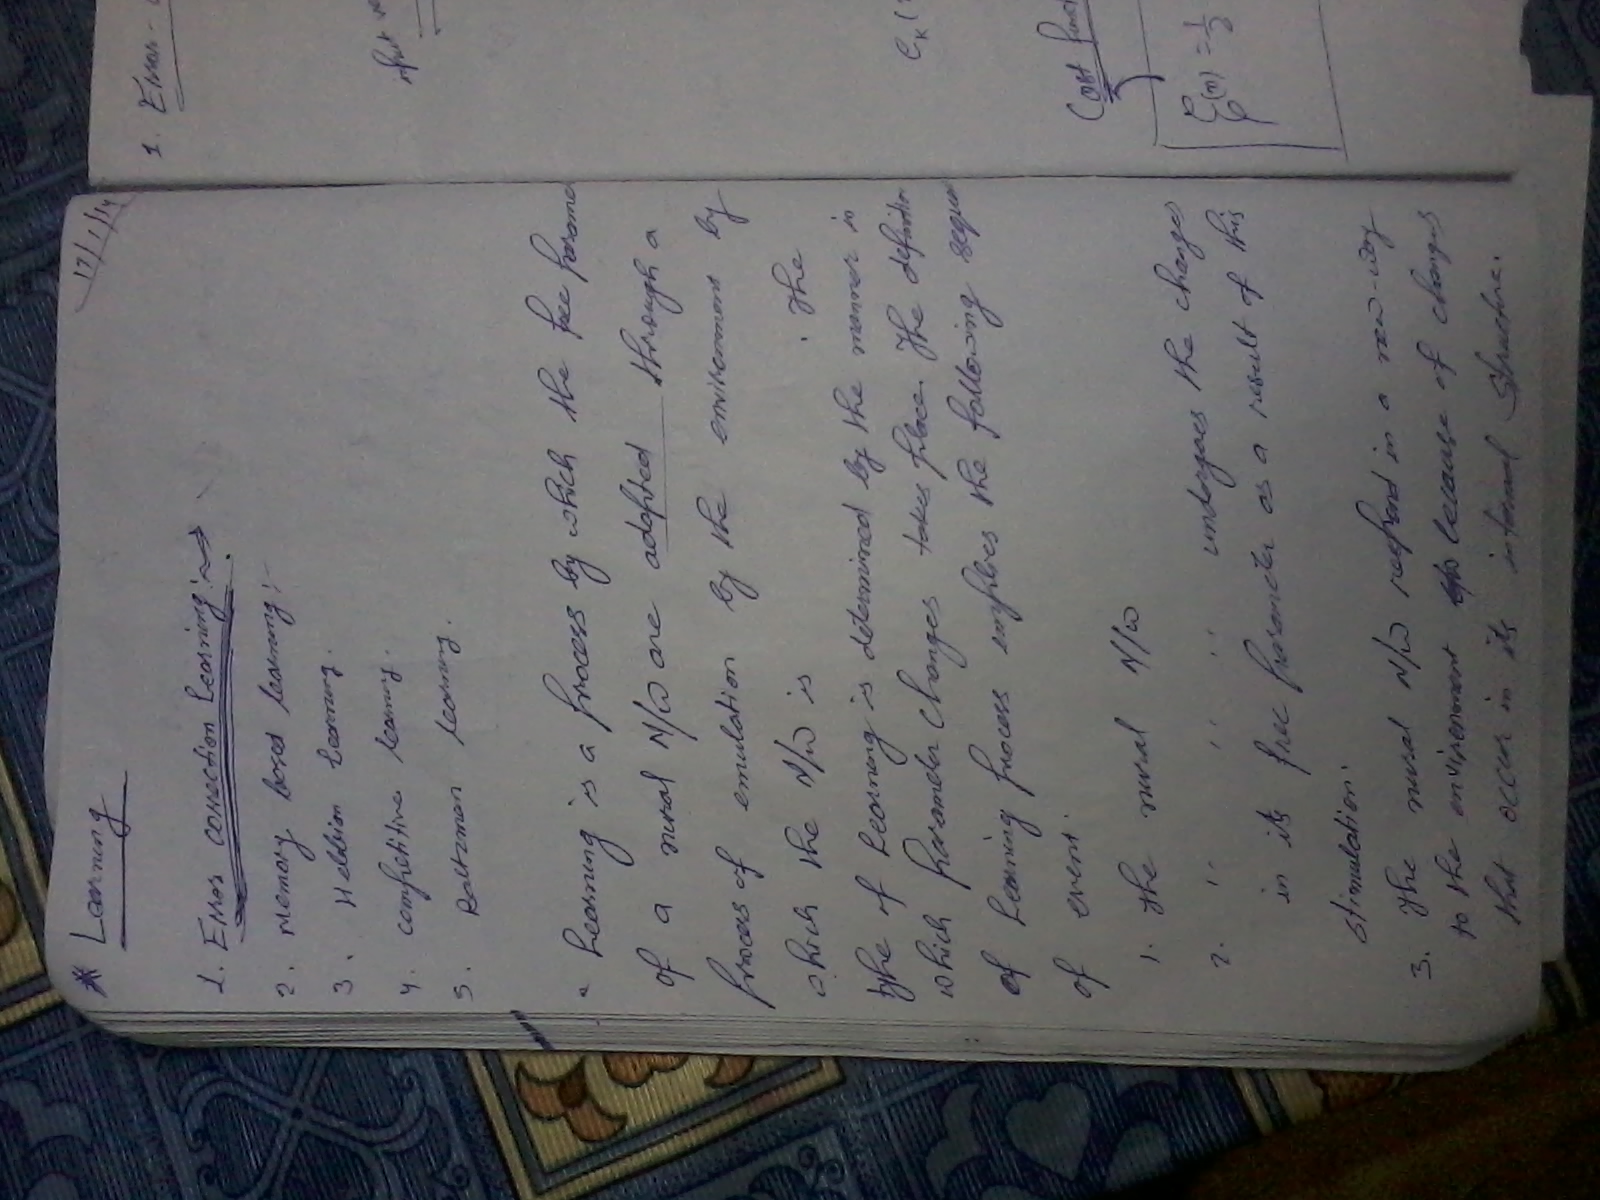 17/1/14
* Learning
1. Error correction Learning :→
2. memory bared learning :-
3. Hebbian Learning.
4. competitive learning.
5. Boltzman learning.
" Learning is a process by which the free parame
of a nural N/w are adapted through a
process of emulation by the environment by
which the N/w is . The
type of Learning is determined by the manner in
which parameter changes takes place. The definition
of Learning process implies the following seque
of event.
1. The nural N/w
2. " " " undergoes the changes
in its free parameter as a result of this
stimulation.
3. The nural N/w respond in a new-way
to the enviroment because of changes
that occur in its internal structure.
1. Error-
input ve
Cost func
E(n) = 1/2